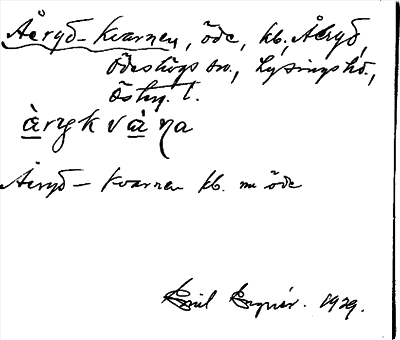 Åeryd-kvarnen, öde, kb, Åeryd,
Ödeshögs sn., Lysings hd.,
Östg. l.
àrykvà ṇa
Åeryd-kvarnen kb. nu öde
Emil 1929.